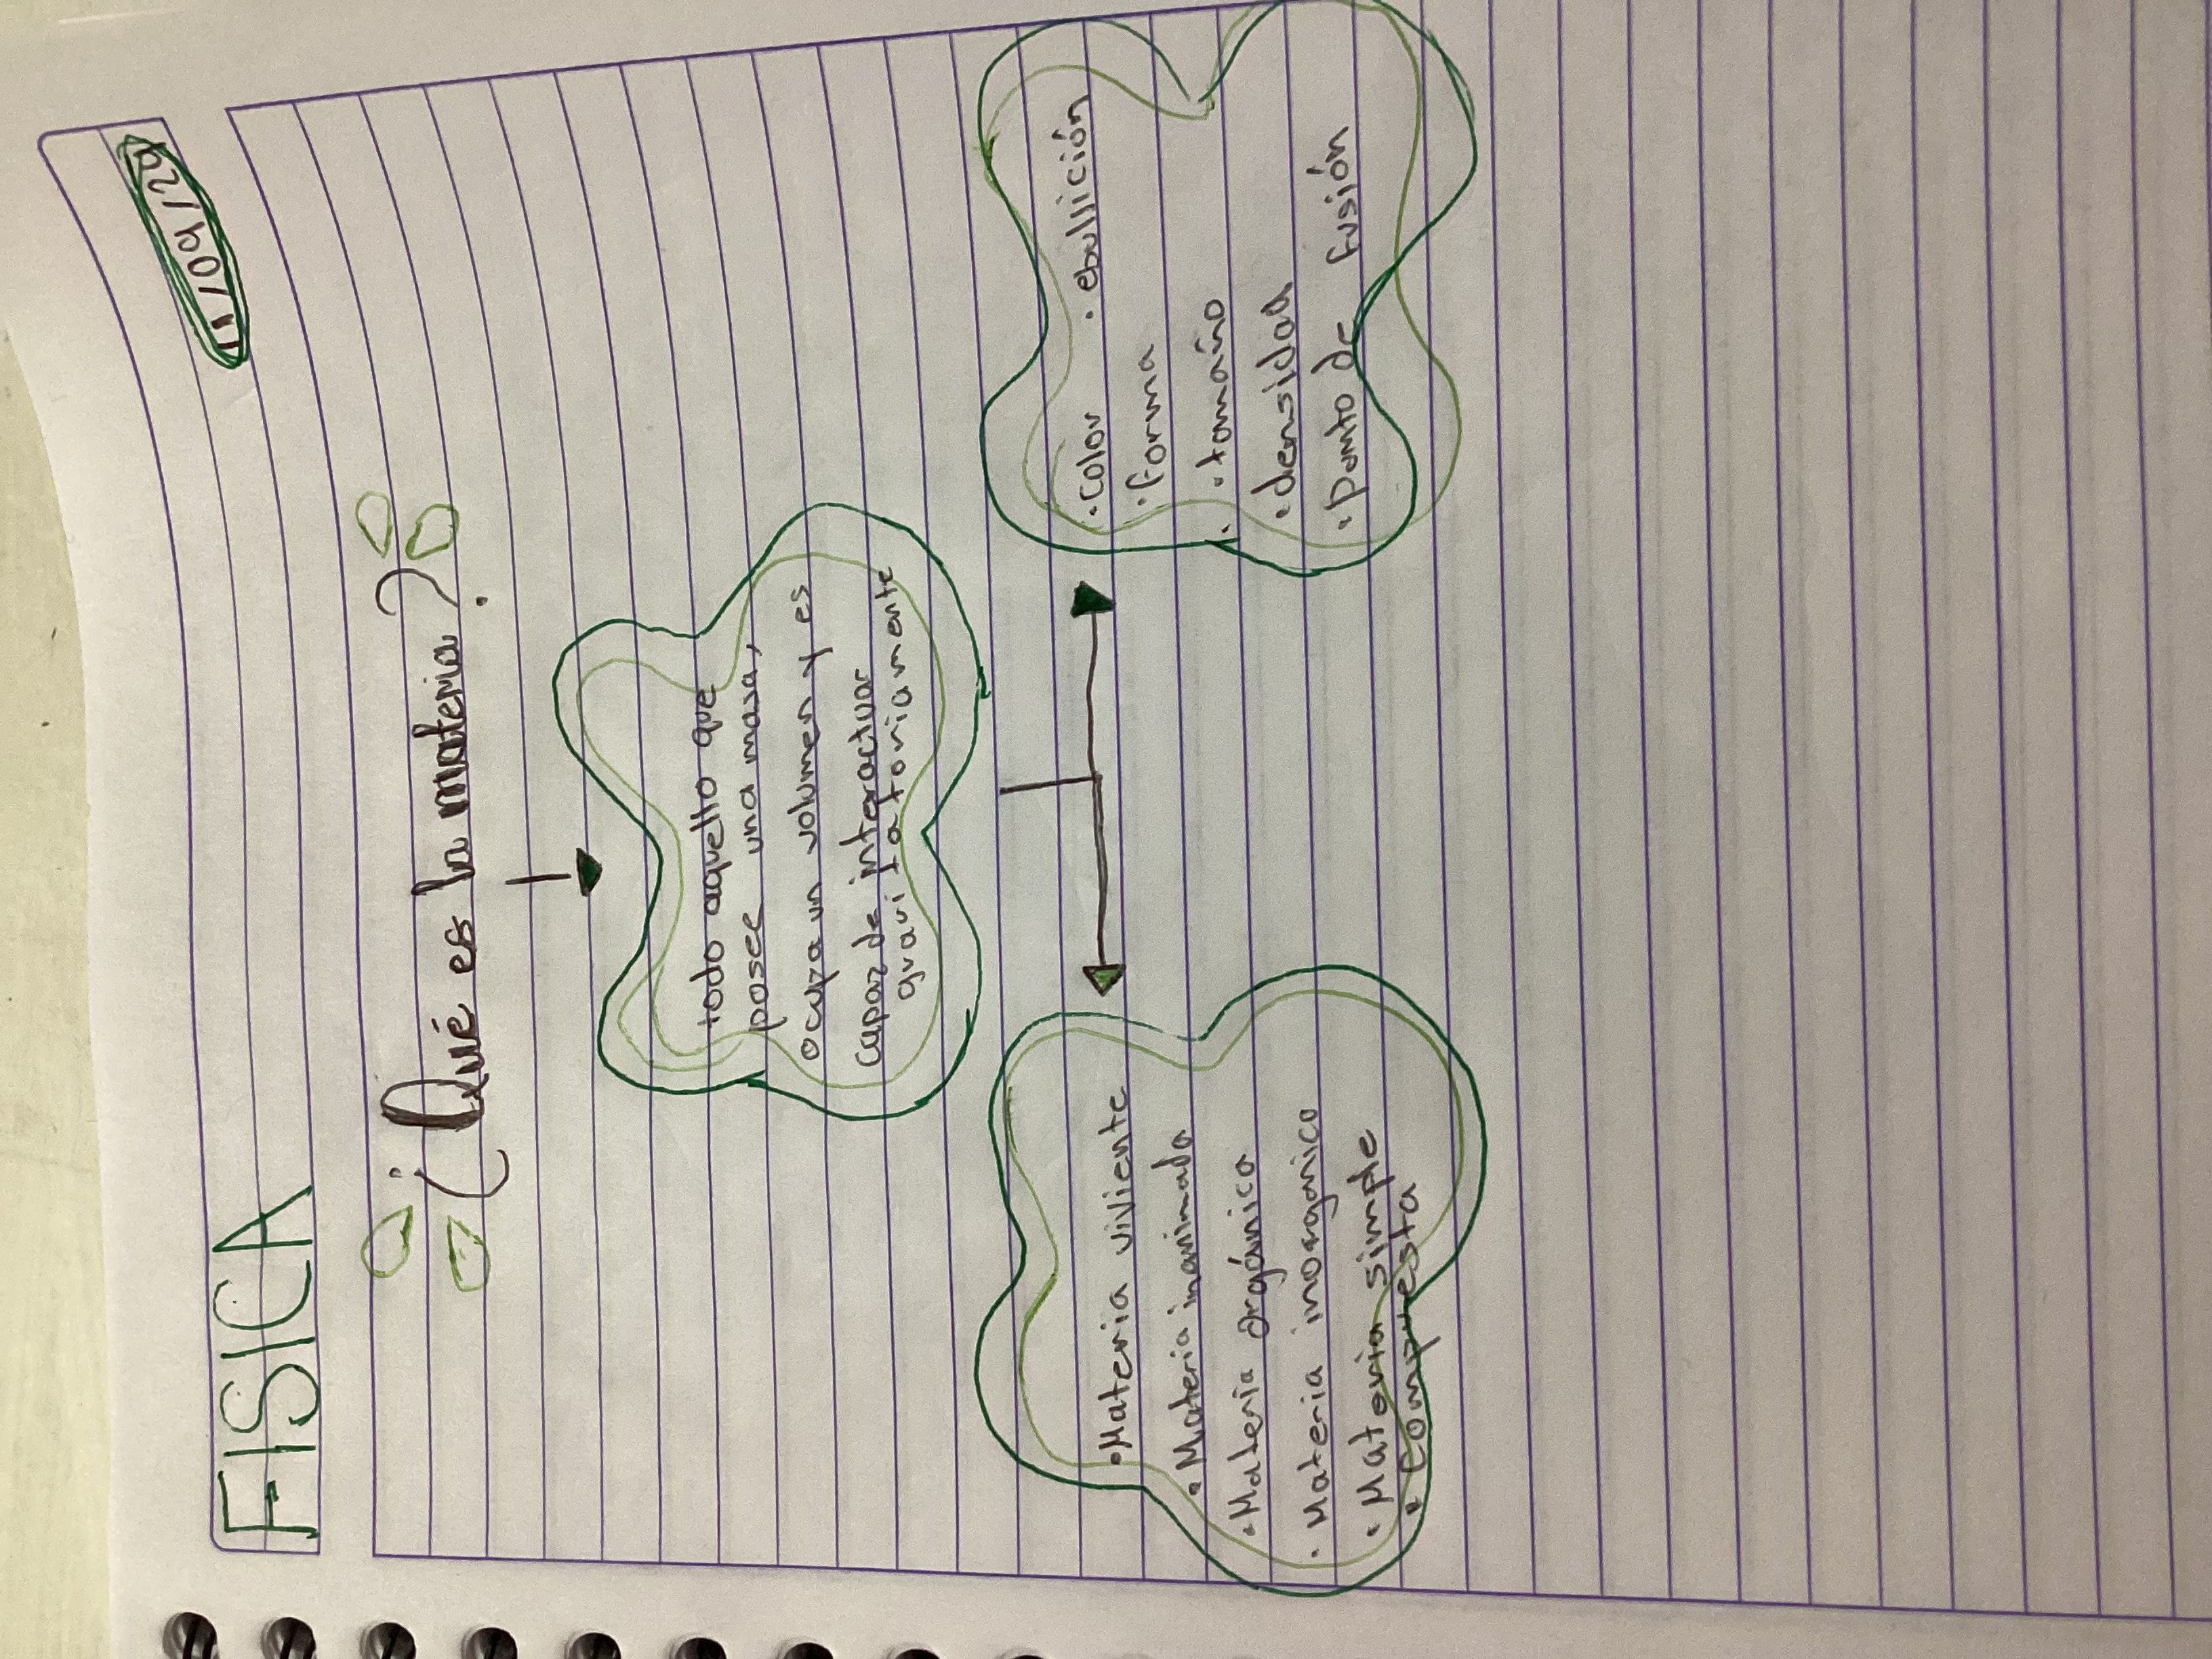 FISICA
11/09/24
¿Qué es la materia?
todo aquello que
posee una masa,
ocupa un volumen y es
capaz de interactuar
gravitatoriamente
• Materia viviente
• Materia inanimada
• Materia orgánica
• Materia inorgánico
• Materia simple
• compuesta
• color • ebullición
• forma
• tamaño
• densidad
• punto de fusión